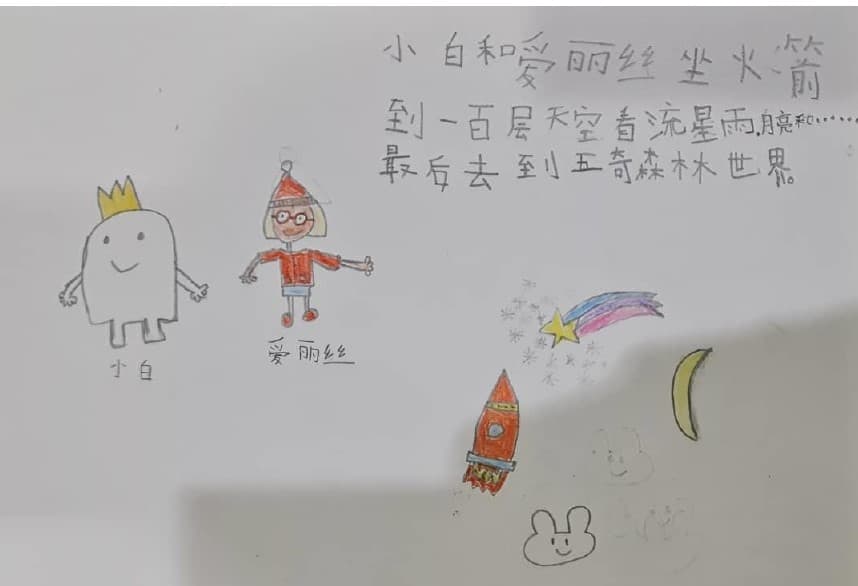 小白和爱丽丝坐火箭
到一百层天空看流星雨,月亮和……
最后去到五奇森林世界。
小白
爱丽丝